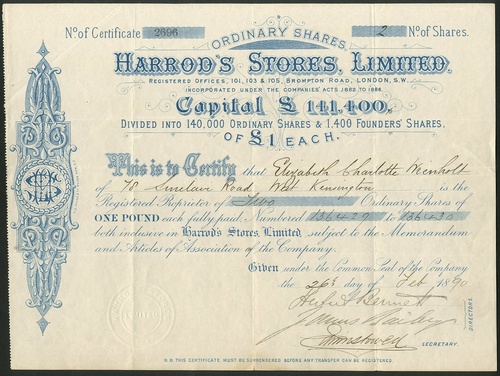 ORDINARY SHARES.
Nº of Certificate 2696
2 Nº of Shares.
HARROD'S STORES, LIMITED.
REGISTERED OFFICES, 101, 103 & 105, BROMPTON ROAD, LONDON, S.W.
INCORPORATED UNDER THE COMPANIES' ACTS 1862 TO 1886
Capital £ 141,400,
DIVIDED INTO 140,000 ORDINARY SHARES & 1,400 FOUNDERS' SHARES,
OF £1 EACH.
This is to Certify that Elizabeth Charlotte Weinholt
of 78 Road, West Kensington is the
Registered Proprietor of Two Ordinary Shares of
ONE POUND each fully paid, Numbered 136429 to 136430
both inclusive in Harrod's Stores, Limited, subject to the Memorandum
and Articles of Association of the Company.
Given under the Common Seal of the Company
the 26th day of Feb 1890
Bennett
James Bailey
DIRECTORS.
SECRETARY.
N.B. THIS CERTIFICATE MUST BE SURRENDERED BEFORE ANY TRANSFER CAN BE REGISTERED.